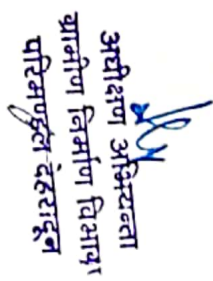 अधीक्षण अभियन्ता
ग्रामीण निर्माण विभाग
परिमण्डल-देहरादून